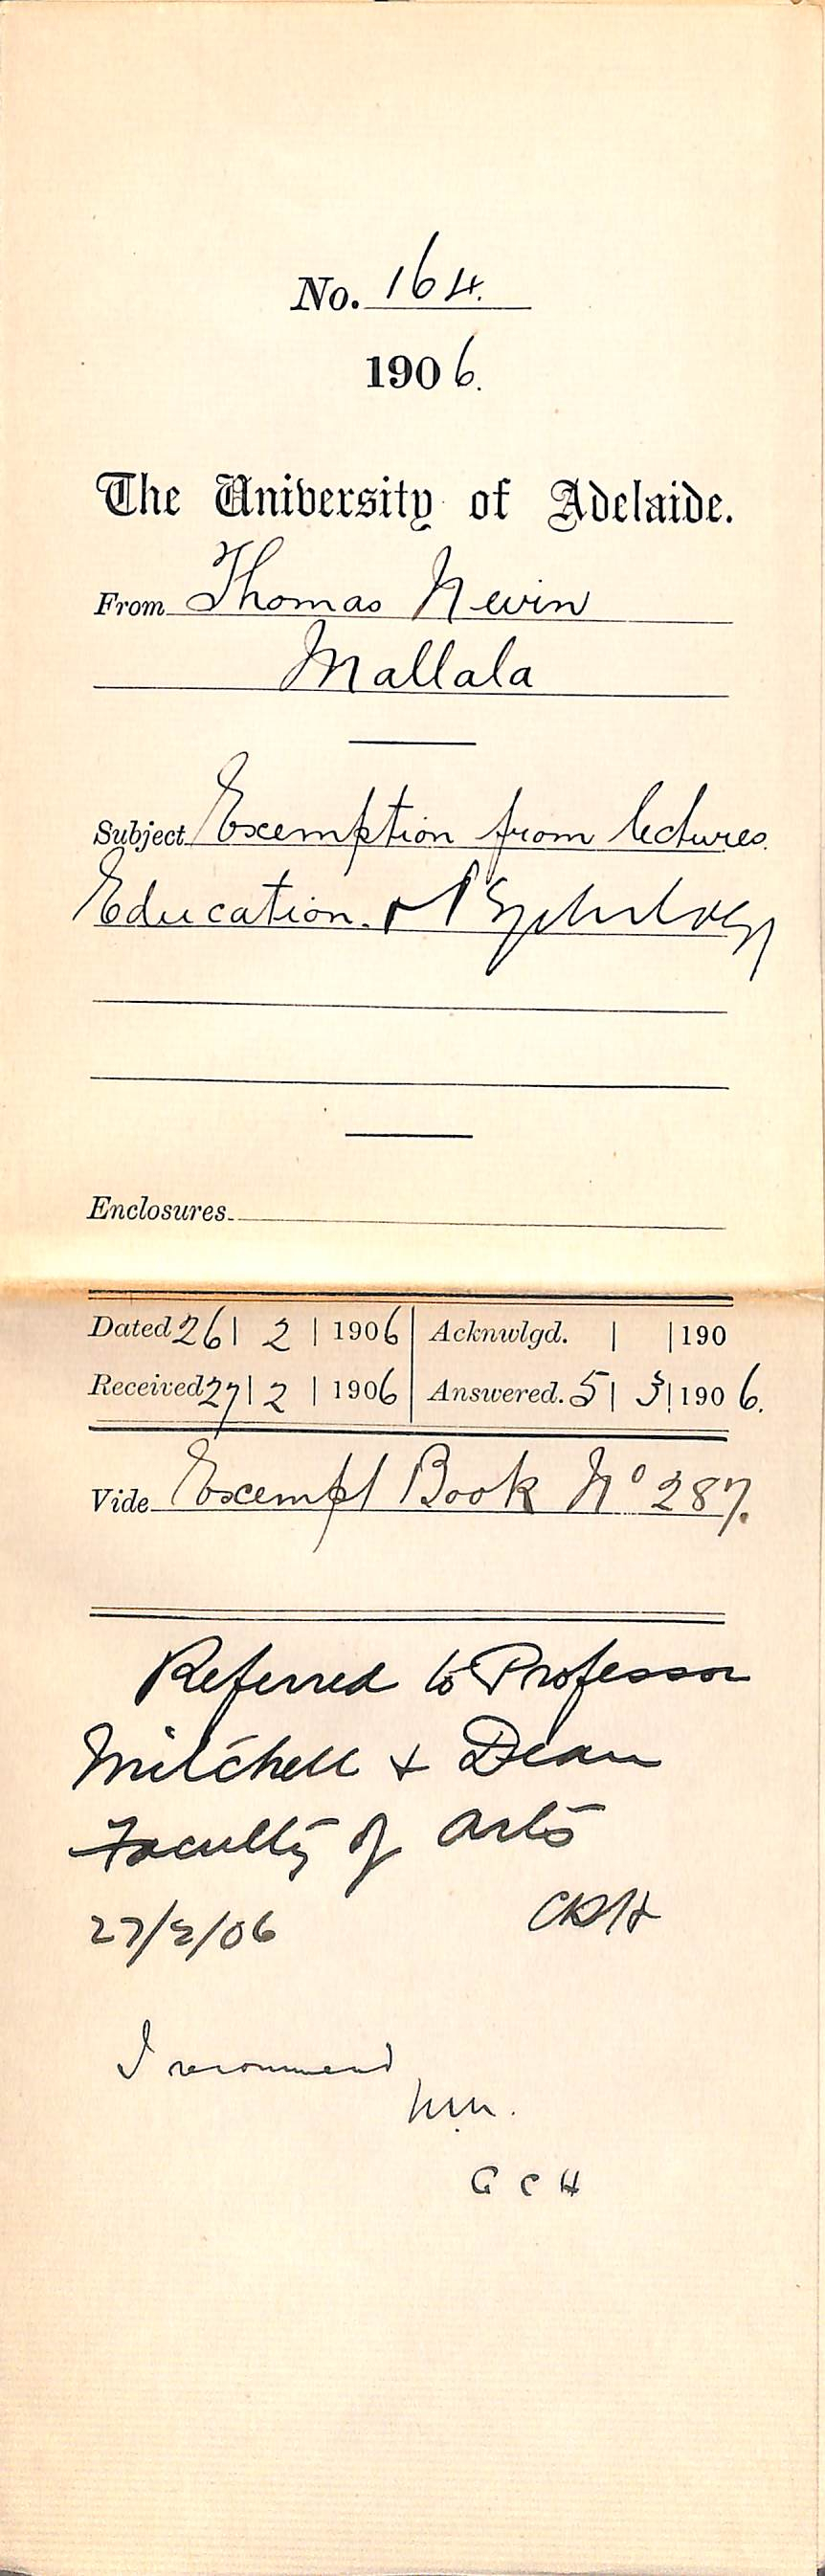 No. 164.
1906.
The University of Adelaide.
From Thomas Nevin
Mallala
Subject Exemption from lectures.
Education. & Psychology
Enclosures
Dated 26 | 2 | 1906 | Acknwlgd. | | 190
Received 27 | 2 | 1906 | Answered. 5 | 3 | 1906.
Vide Exempt Book No 287.
Referred to Professor
Mitchell & Dean
Faculty of Arts
27/2/06
I recommend
W.M.
G C H